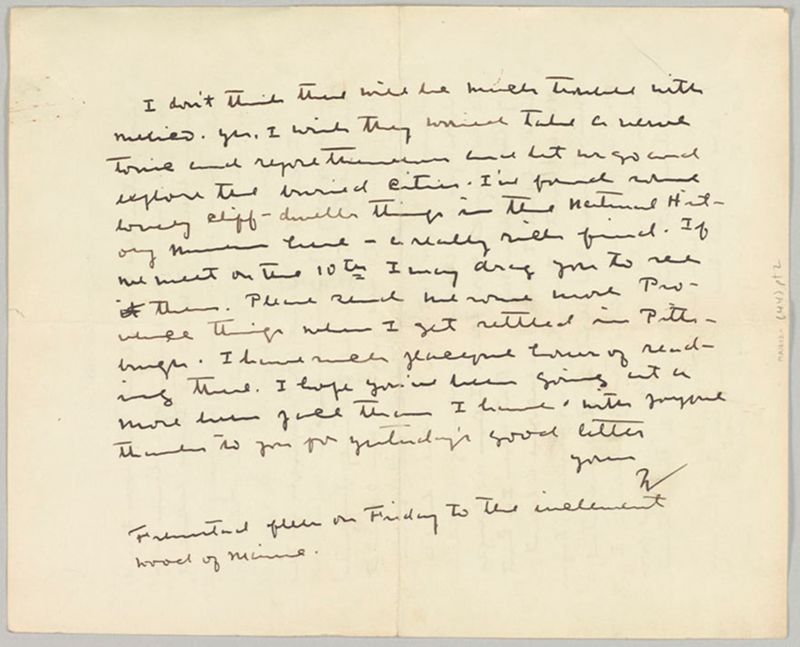 I don't think there will be much trouble with
Mexico. Yes, I wish they would take a nerve
tonic and and let us go and
explore the buried cities. I've found some
lovely cliff-dweller things in the Natural Hist-
ory Museum here - a really rich find. If
we meet on the 10th I may drag you to see
them. Please send me some more Pro-
vence things when I get settled in Pitts-
burgh. I have such peaceful hours of read-
ing there. I hope you've been going at a
more even pace than I have. With joyful
thanks to you for yesterday's good letter
Yours
W
Fremstad flees on Friday to the inclement
wood of Maine.